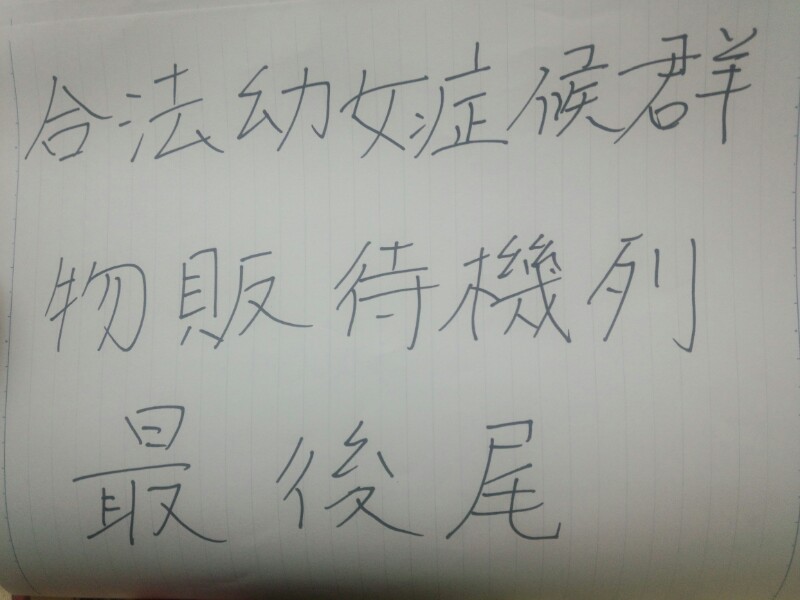 合法幼女症候群
物販待機列
最後尾